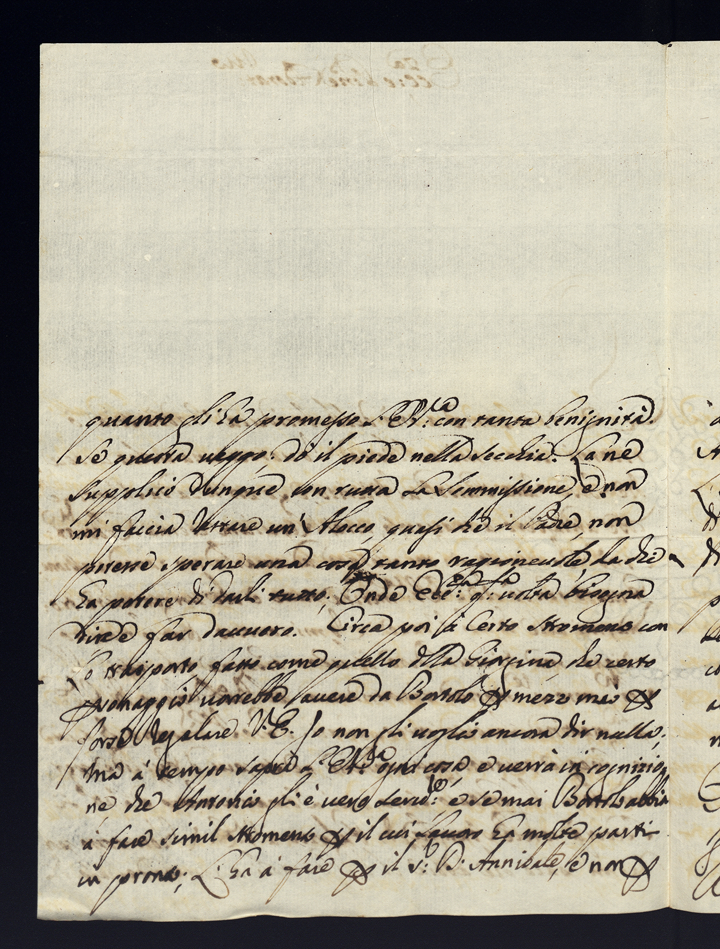 quanto gli ha promesso S. Ecc:za con tanta benignità.
Se questa veggo: dò il piede nella secchia. La ne
supplico dunque con tutta La Sommissione, e non
mi faccia restare un' Alocco, quasi che il Padre, non
potesse sperare una cosa tanto ragionevole da che
ha potere di farli tutto. Onde Ecc:za q:sta volta bisogna
dire e far davvero. Circa poi à certo stromento con
lo trasporto fatto come quello della Giorgina che certo
personaggio vorrebbe havere da Bortolo per mezzo mio per
forse Regalare V: E. Io non gli voglio ancora dir nulla,
ma a tempo saprà S: Ecc:za ogni cosa e verrà in cognizio,
ne che Antonio gli è vero serv:re, e se mai Bortolo abbia
à fare simil stromento per il cui lavoro ha molte parti
in pronto; L'ha à fare per il S:r D: Annibale, e non per